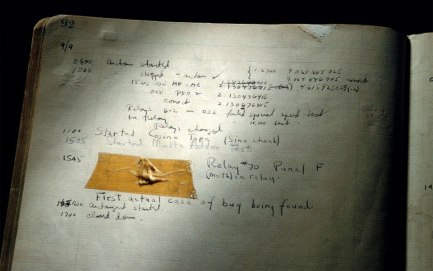 92
9/9
0800 Antan started
1000 " stopped - antan ✓ { 1.2700 9.037 847 025
9.037 846 995 correct
13"uc MP-MC 2.130476415 4.615925059(-2)
033 PRO 2 2.130476415
correct 2.130676415
Relays 6-2 in 033 failed special speed test
in Relay " 10.00 test
Relays changed
1100 Started Cosine Tape (Sine check)
1525 Started Multi Adder Test
1545 Relay #70 Panel F
(moth) in relay.
First actual case of bug being found.
1630 antangent started.
1700 closed down.